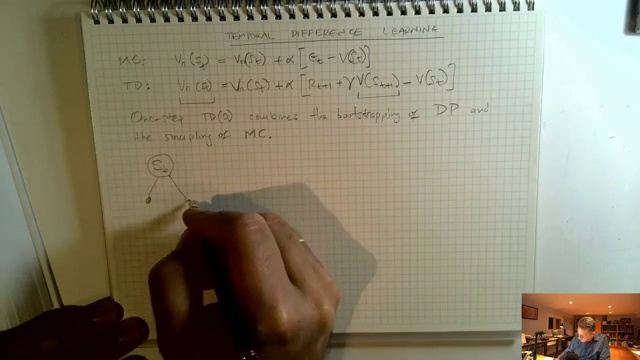 TEMPORAL DIFFERENCE LEARNING
MC: Vπ(St) = Vπ(St) + α [Gt − V(St)]
TD: Vπ(St) = Vπ(St) + α [Rt+1 + γV(St+1) − V(St)]
One-step TD(0) combines the bootstrapping of DP and
the sampling of MC.
St